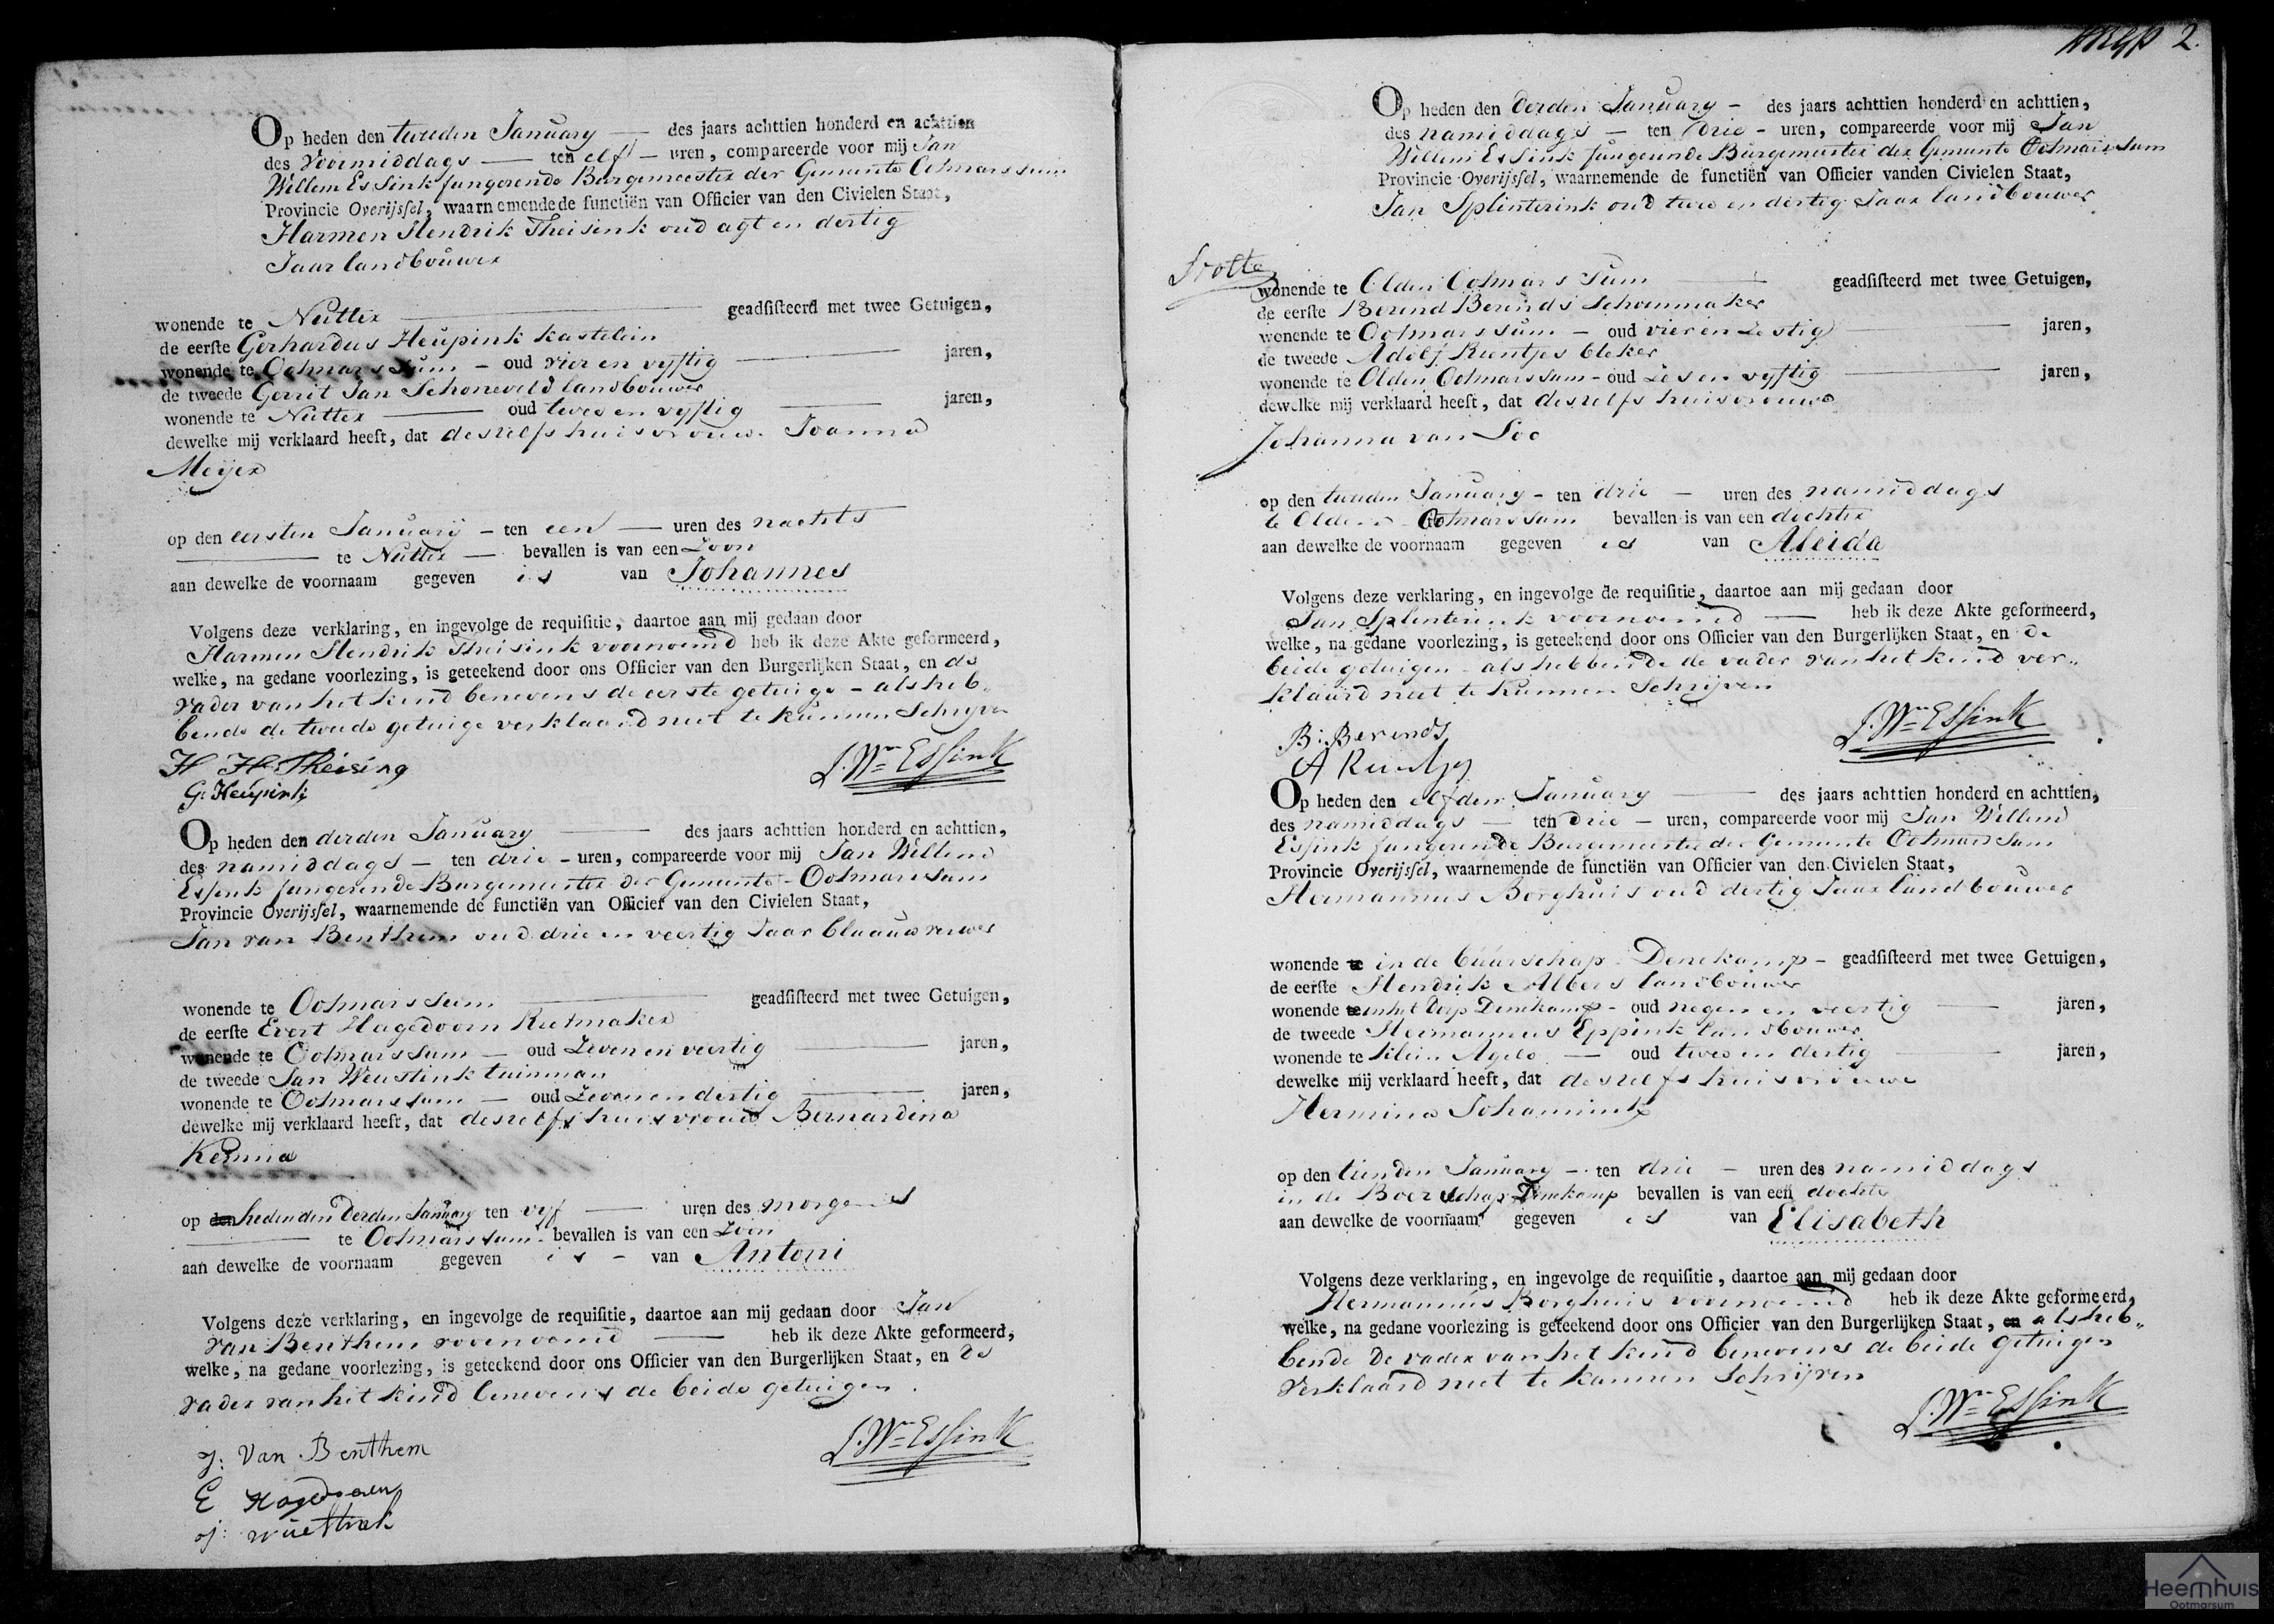 Op heden den tweeden January des jaars achttien honderd en achttien
des voormiddags ten elf uren, compareerde voor mij Jan
Willem Essink fungerende Burgemeester der Gemeente Ootmarssum
Provincie Overijssel, waarnemende de functiën van Officier van den Civielen Staat,
Harmen Hendrik Theisink oud agt en dertig
Jaar landbouwer
wonende te Nutter geadsisteerd met twee Getuigen,
de eerste Gerhardus Heupink kastelein
wonende te Ootmarssum - oud vier en vyftig jaren,
de tweede Gerrit Jan Schoneveld landbouwer
wonende te Nutter oud twee en vyftig jaren,
dewelke mij verklaard heeft, dat deszelfs huisvrouw Joanna
Meijer
op den eersten January - ten een uren des nachts
te Nutter bevallen is van een Zoon
aan dewelke de voornaam gegeven is van Johannes
Volgens deze verklaring, en ingevolge de requisitie, daartoe aan mij gedaan door
Harmen Hendrik Theisink voornoemd heb ik deze Akte geformeerd,
welke, na gedane voorlezing, is geteekend door ons Officier van den Burgerlijken Staat, en de
vader van het kind benevens de eerste getuige - als heb„
bende de tweede getuige verklaard niet te kunnen Schryven
H H Theising
J. Wm Essink
G: Heupink
Op heden den derden January des jaars achttien honderd en achttien,
des namiddags - ten drie - uren, compareerde voor mij Jan Willem
Essink fungerende Burgemeester der Gemeente - Ootmarssum
Provincie Overijssel, waarnemende de functiën van Officier van den Civielen Staat,
Jan van Benthem oud drie en veertig Jaar blaauwverwer
wonende te Ootmarssum geadsisteerd met twee Getuigen,
de eerste Evert Hagedoorn Rietmaker
wonende te Ootmarssum - oud Zeven en veertig jaren,
de tweede Jan Weustink tuinman
wonende te Ootmarssum - oud Zeven en dertig jaren,
dewelke mij verklaard heeft, dat deszelfs huisvrouw Bernardina
Kemna
op den heden den derden January ten vyf uren des morgens
te Ootmarssum - bevallen is van een Zoon
aan dewelke de voornaam gegeven is - van Antoni
Volgens deze verklaring, en ingevolge de requisitie, daartoe aan mij gedaan door Jan
van Benthem voornoemd heb ik deze Akte geformeerd,
welke, na gedane voorlezing, is geteekend door ons Officier van den Burgerlijken Staat, en de
vader van het kind benevens de beide getuigen.
J. Wm Essink
J: Van Benthem
E Hagedoorn
J:
2.
Op heden den derden January - des jaars achttien honderd en achttien,
des namiddags - ten drie - uren, compareerde voor mij Jan
Willem Essink fungerende Burgemeester der Gemeente Ootmarssum
Provincie Overijssel, waarnemende de functiën van Officier vanden Civielen Staat,
Jan Splinterink oud twee en dertig Jaar landbouwer
wonende te Olden Ootmarssum geadsisteerd met twee Getuigen,
de eerste Berend Berends Schoenmaker
wonende te Ootmarssum - oud vier en Zestig jaren,
de tweede Adolf Rientjes bleker
wonende te Olden Ootmarssum - oud Zes en vyftig jaren,
dewelke mij verklaard heeft, dat deszelfs huisvrouwe
Johanna van Loo
op den tweeden January - ten drie - uren des namiddags
te Olden Ootmarssum bevallen is van een dochter
aan dewelke de voornaam gegeven is van Aleida
Volgens deze verklaring, en ingevolge de requisitie, daartoe aan mij gedaan door
Jan Splinterink voornoemd heb ik deze Akte geformeerd,
welke, na gedane voorlezing, is geteekend door ons Officier van den Burgerlijken Staat, en de
beide getuigen - als hebbende de vader van het kind ver„
klaard niet te kunnen Schrijven
J. Wm Essink
B: Berends
A Rientjes
Op heden den elfden January des jaars achttien honderd en achttien,
des namiddags - ten drie - uren, compareerde voor mij Jan Willem
Essink fungerende Burgemeester der Gemeente Ootmarssum
Provincie Overijssel, waarnemende de functiën van Officier van den Civielen Staat,
Hermannus Borghuis oud dertig Jaar landbouwer
wonende te in de buurschap Denekamp - geadsisteerd met twee Getuigen,
de eerste Hendrik Albers landbouwer
wonende te in het dorp Denekamp - oud negen en veertig jaren,
de tweede Hermannus Eppink landbouwer
wonende te Klein Agelo oud twee en dertig jaren,
dewelke mij verklaard heeft, dat deszelfs huisvrouwe
Hermina Johannink
op den tienden January - ten drie - uren des namiddags
in de Boerschap Denekamp bevallen is van een dochter
aan dewelke de voornaam gegeven is van Elisabeth
Volgens deze verklaring, en ingevolge de requisitie, daartoe aan mij gedaan door
Hermannus Borghuis voornoemd heb ik deze Akte geformeerd,
welke, na gedane voorlezing is geteekend door ons Officier van den Burgerlijken Staat, en als heb„
bende de vader van het kind benevens de beide getuigen
verklaard niet te kunnen Schrijven
J. Wm Essink
Heemhuis
Ootmarsum